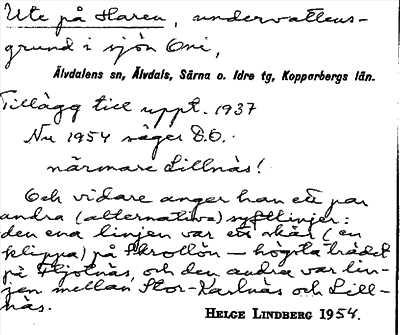 Ute på Haren, undervattens-
grund i sjön Oni,
Älvdalens sn, Älvdals, Särna o. Idre tg, Kopparbergs län.
Tillägg till uppt. 1937
Nu 1954 säger D.O.
närmare Lillnäs!
Och vidare anger han ett par
andra (alternativa) syftlinjer:
den ena linjen var ett skär (en
klippa) på Skrollön — högsta trädet
på Fljotnäs, och den andra var lin-
jen mellan Stor-Karlnäs och Lill-
näs.
HELGE LINDBERG 1954.